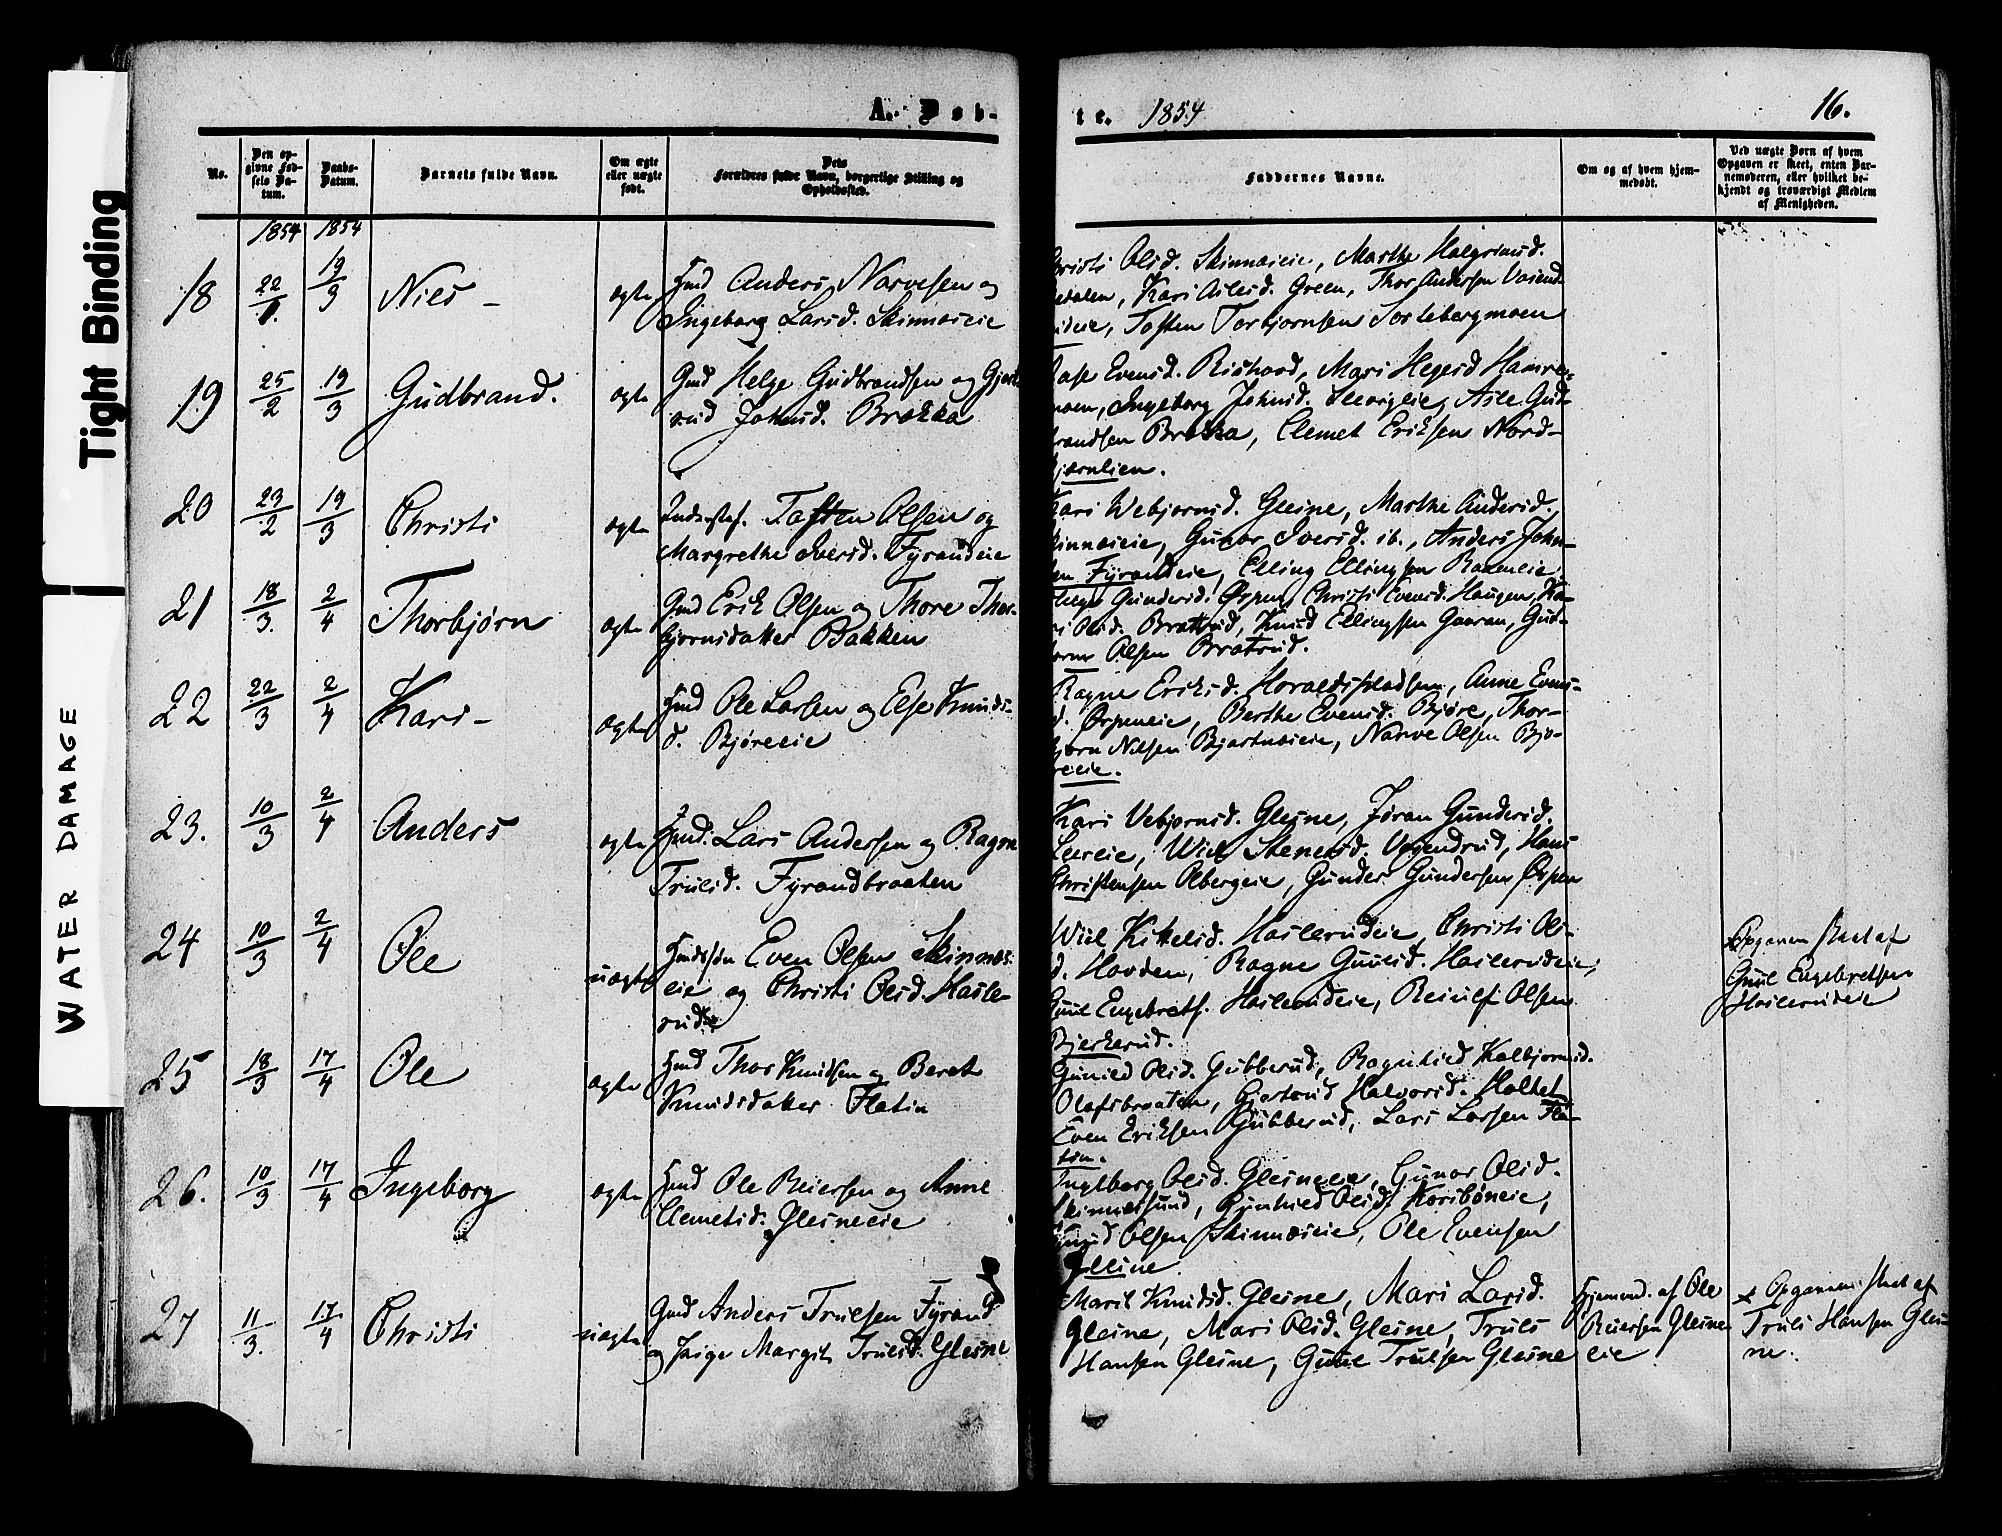 Tight Binding
WATER DAMAGE
A. Døb-
te. 1854
16.
No.
Den op-
givne Fød-
sels Da-
tum.
Daabs-
Datum.
Barnets fulde Navn.
Om ægte
eller uægte
født.
Dets
Forældres fulde Navn, borgerlige Stilling og
Opholdssted.
Faddernes Navne.
Om og af hvem hjem-
medøbt.
Ved uægte Børn af hvem
Opgaven er skeet, enten Bar-
nemoderen, eller hvilket be-
kjendt og troværdigt Medlem
af Menigheden.
1854 1854
18 22/1. 19/3 Niels - ægte Hmd Anders Narvesen og
Ingeborg Larsd. Skinnæseie
Olsd. Skinnæseie, Marthe Halgrimsd.
Kari Asled. Green, Thor Andersen
Tosten Torbjørnsen Tortebergmoen
19 25/2 19/3 Gudbrand. ægte Gmd Helge Gudbrandsen og Gjert-
rud Johnsd. Brækka
Evensd. Rishovd, Mari Hegesd Hamre-
moen, Ingeborg Johnsd. Asle Gud-
brandsen Brækka, Clemet Eriksen Nord-
bjørnlien.
20 23/2 19/3 Christi ægte Inderstsf. Tosten Olsen og
Margrethe Iversd. Fyrandeie
Kari Webjørnsd. Glesne, Marthe Andersd.
Skinnæseie, Gunor Iversd. ib., Anders John-
sen Fyrandeie, Elling Ellingsen Raaeneie
21 18/3. 2/4 Thorbjørn ægte Gmd Erik Olsen og Thore Thor-
bjørnsdatter Bakken
Helge Gundersd. Ørpen, Christi Evensd. Haugen, Ka-
ri Olsd. Bratrud, Knud Ellingsen Gaaran, Gud-
Olsen Bratrud.
22 22/3 2/4 Kari - ægte Hmd Ole Larsen og Else Knuds-
d. Bjøreeie
Ragne Eriksd. Anne Evens-
d. Ørpeneie, Berthe Evensd. Bjøre, Thor-
bjørn Nilsen Bjertnæseie, Narve Olsen Bjø-
reeie.
23. 10/3 2/4 Anders ægte Hmd. Lars Andersen og Ragne
Trulsd. Fyrandbraaten
Kari Vebjørnsd. Glesne, Jøran Gundersd.
Leereie, Wiel Stenersd. Hans
Christensen Olbergeie, Gunder Gundersen Ørpen
24 10/3 2/4 Ole uægte Hmdssøn Even Olsen Skinnæs-
eie og Christi Olsd. Hasle-
rud
Wiel Kittelsd. Haslerudeie, Christi Ols-
d. Hovden, Ragne Guulsd. Haslerudeie,
Guul Engebrets. Haslerudeie, Reiulf Olsen
Bjerkerud.
Opgaven skeet af
Guul Engebretsen
Haslerudeie
25 18/3 17/4 Ole ægte Hmd Thor Knudsen og Beret
Knudsdatter Flatin
Gunild Olsd. Gubberud, Ragnhild Kolbjørnsd.
Olafsbraaten, Gjertrud Halvorsd. Holtet
Even Eriksen Gubberud, Lars Larsen Fla-
tin.
26. 10/3 17/4 Ingeborg ægte Hmd Ole Reiersen og Anne
Clemetsd. Glesneeie
Ingeborg Olsd. Glesneeie, Gunor Olsd.
Skinnessund, Gunhild Olsd. Korsbøneie,
Olsen Skinnæseie, Ole Evensen
Glesne
27 11/3. 17/4 Christi uægte Gmd Anders Trulsen Fyrand
og Pige Margit Trulsd. Glesne
Marit Knudsd. Glesne, Mari Larsd.
Glesne, Mari Olsd. Glesne, Truls
Hansen Glesne, Guul Trulsen Glesne
Hjemmed. af Ole
Reiersen Glesne-
eie
x Opgaven skeet af
Truls Hansen Gles-
ne.